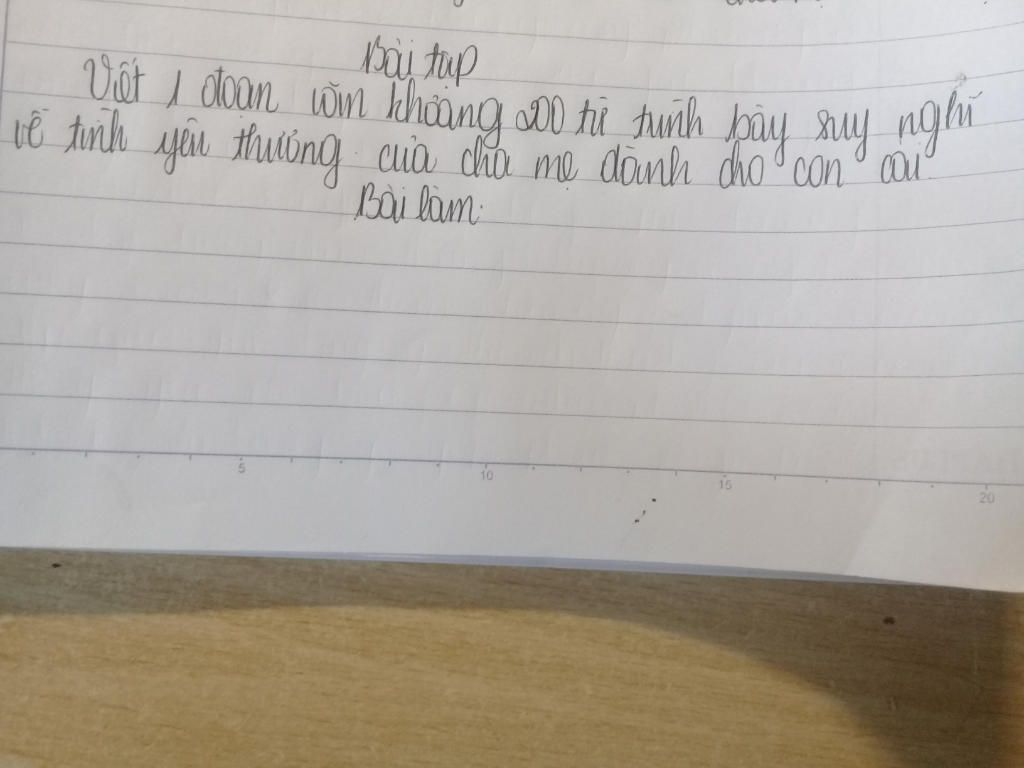 Bài tập
Viết 1 đoạn văn khoảng 200 từ trình bày suy nghĩ
về tình yêu thương của cha mẹ dành cho con cái.
Bài làm.
5 10 15 20